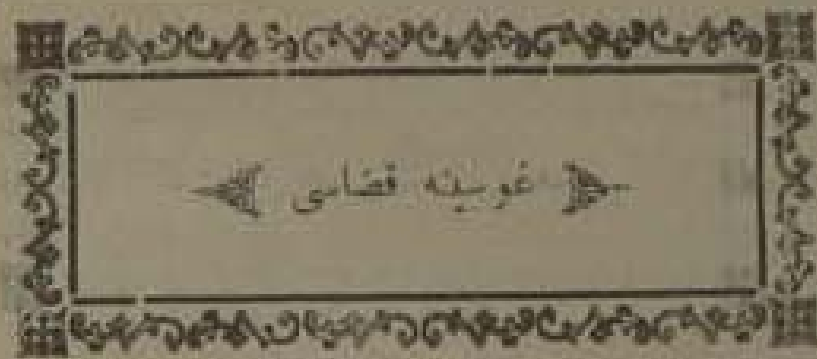 غوسینه قضاسی